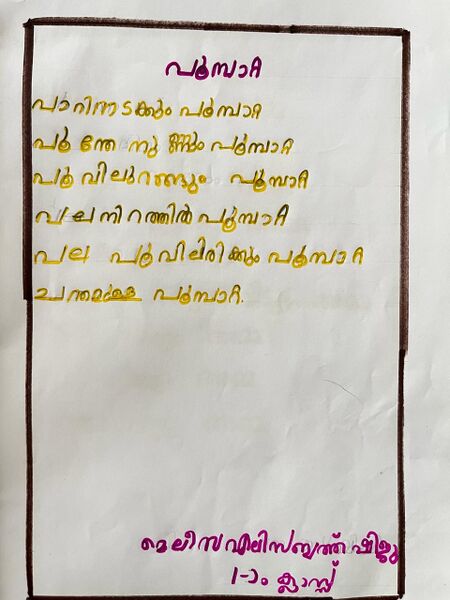 പൂമ്പാറ്റ
പാറിനടക്കും പൂമ്പാറ്റ
പൂന്തേനുണ്ണും പൂമ്പാറ്റ
പൂവിലുറങ്ങും പൂമ്പാറ്റ
പലനിറത്തിൽ പൂമ്പാറ്റ
പല പൂവിലിരിക്കും പൂമ്പാറ്റ
ചന്തമുള്ള പൂമ്പാറ്റ.
മെലീസ എലിസബത്ത് ഷിജു
1-ാം ക്ലാസ്സ്